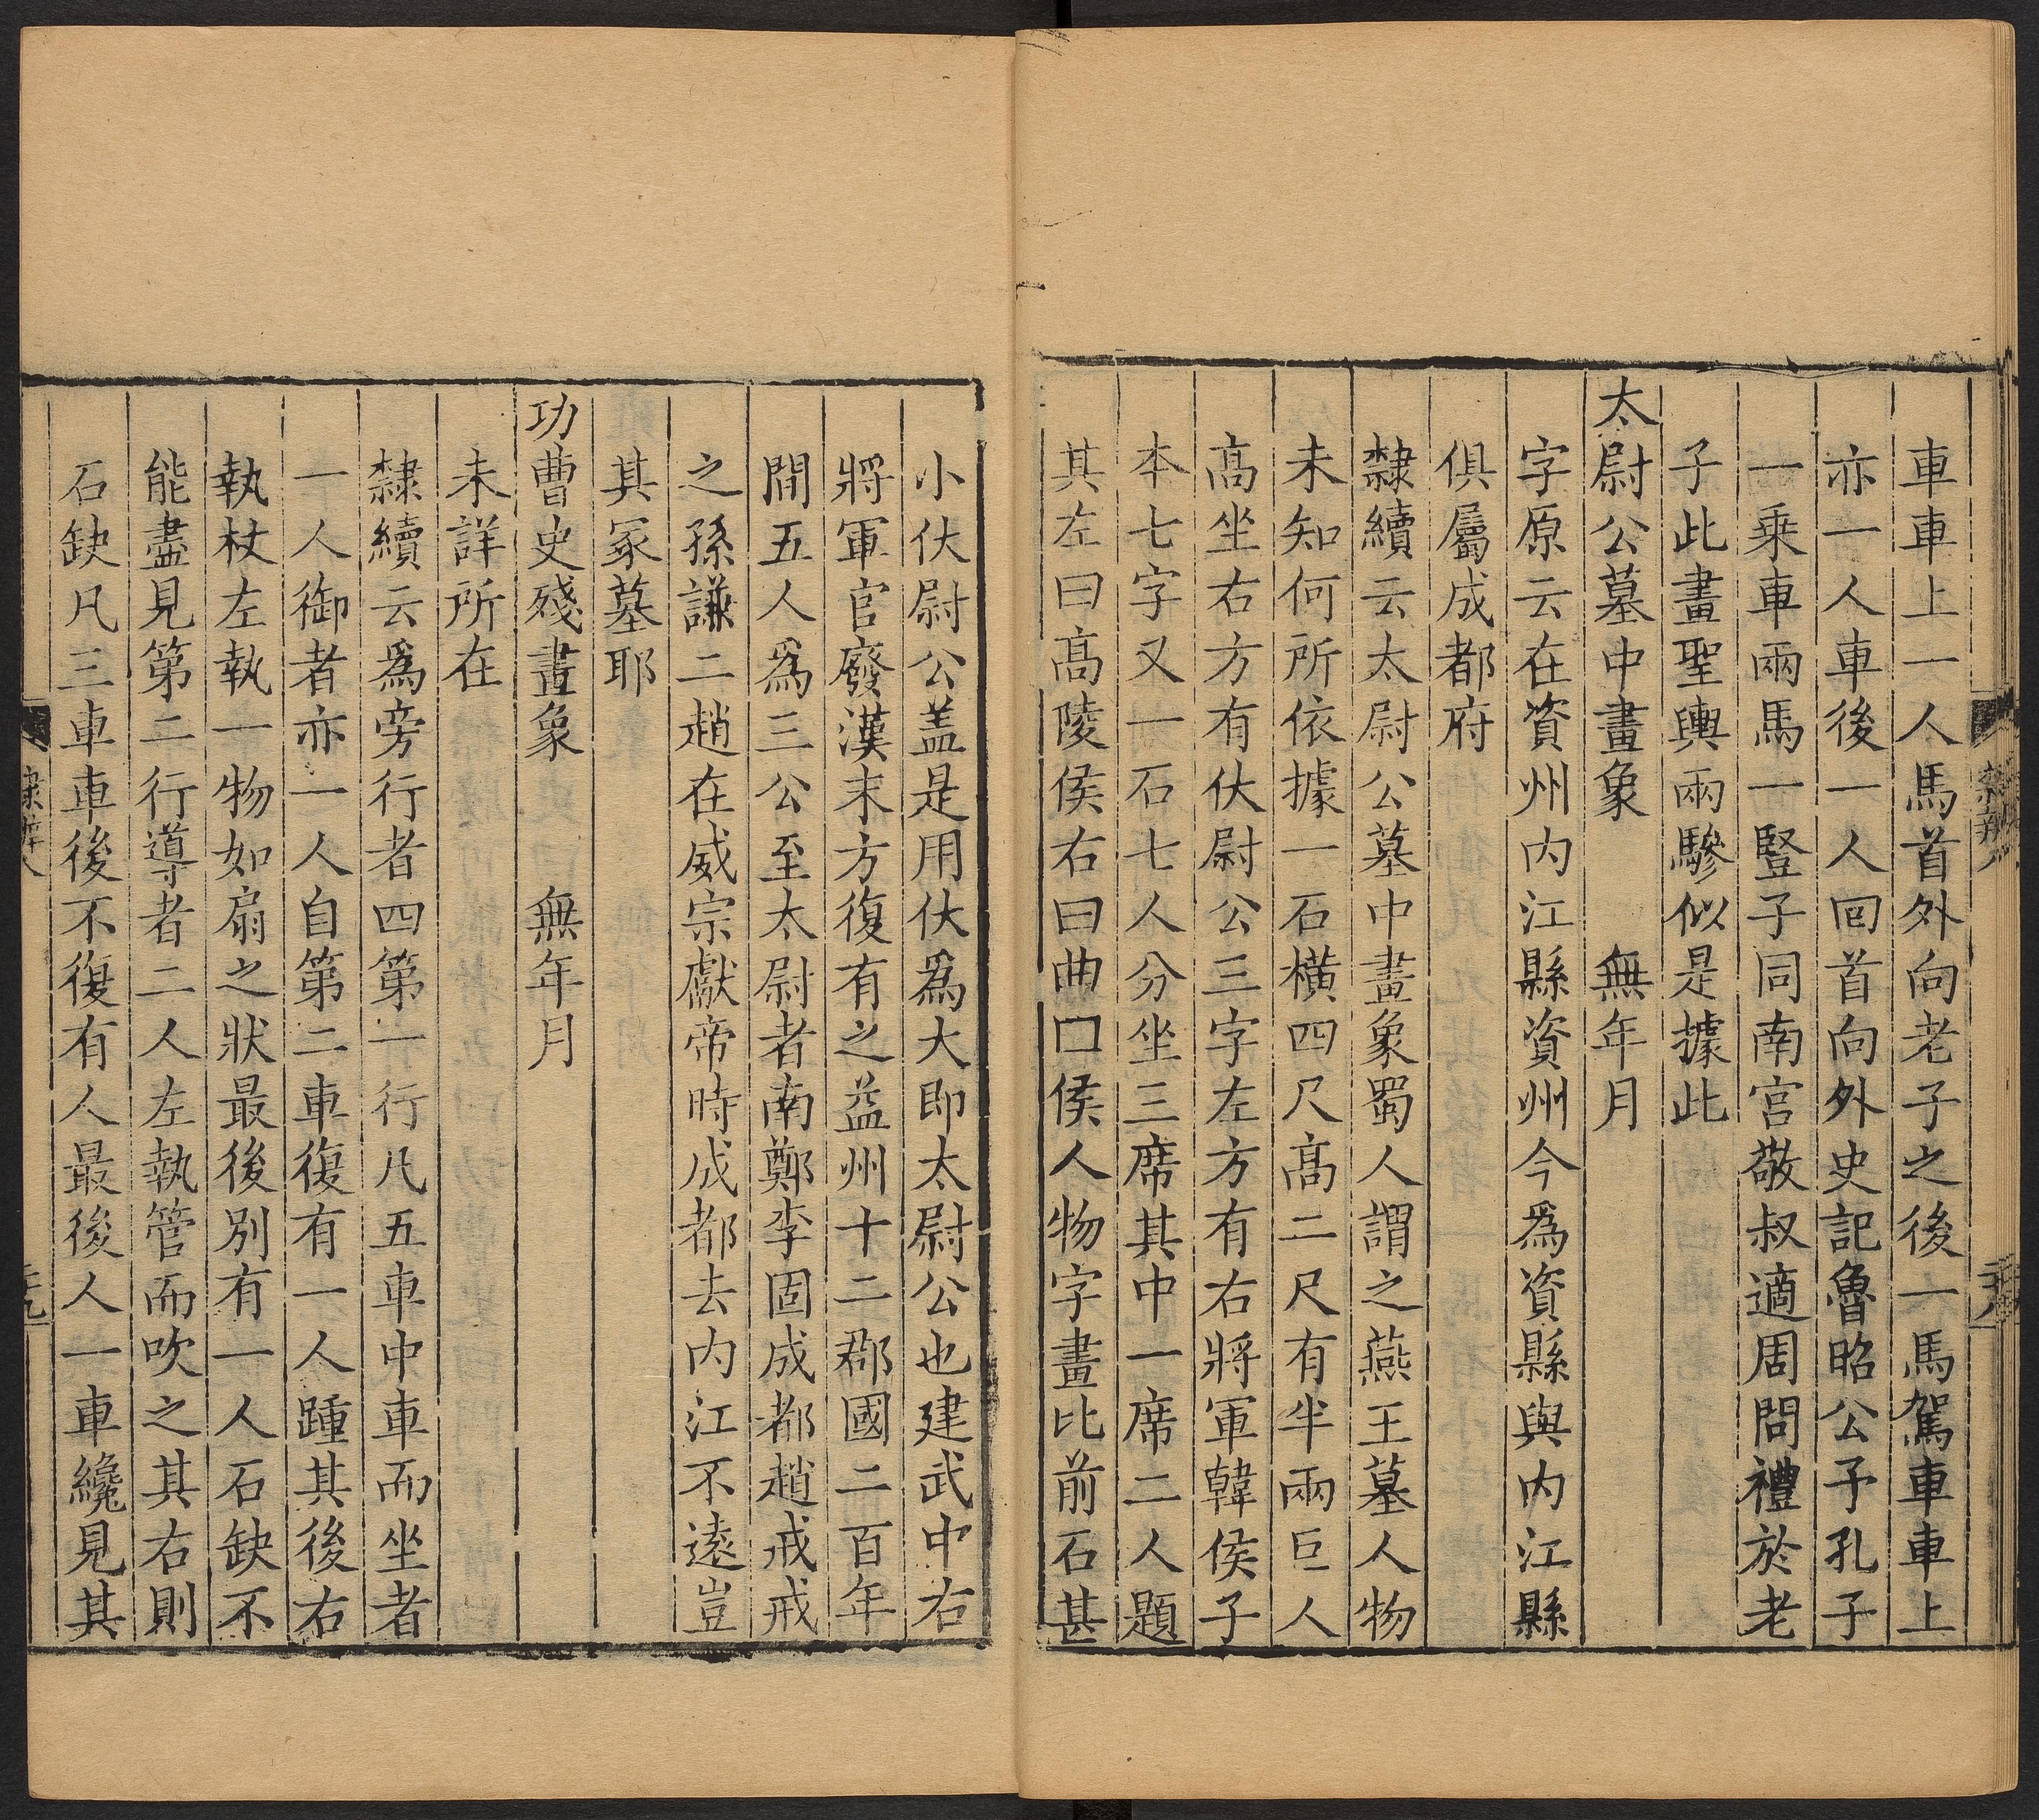 車車上一人馬首外向老子之後一馬駕車車上
亦一人車後一人回首向外史記魯昭公予孔子
一乗車兩馬一豎子同南宮敬叔適周問禮於老
子此畫聖輿兩驂似是據此
太尉公墓中畫象　無年月
字原云在資州內江縣資州今爲資縣與內江縣
俱屬成都府
隸續云太尉公墓中畫象蜀人謂之燕王墓人物
未知何所依據一石橫四尺髙二尺有半兩巨人
髙坐右方有伏尉公三字左方有右將軍韓侯子
本七字又一石七人分坐三席其中一席二人題
其左曰髙陵侯右曰曲囗侯人物字畫比前石甚
小伏尉公盖是用伏爲大即太尉公也建武中右
將軍官廢漢末方復有之益州十二郡國二百年
間五人爲三公至太尉者南鄭李固成都趙戒戒
之孫謙二趙在威宗獻帝時成都去內江不遠豈
其冢墓耶
功曹史殘畫象　無年月
未詳所在
隸續云爲旁行者四第一行凡五車中車而坐者
一人御者亦一人自第二車復有一人踵其後右
執杖左執一物如扇之狀最後別有一人石缺不
能盡見第二行導者二人左執管而吹之其右則
石缺凡三車車後不復有人最後人一車纔見其
隸辨八